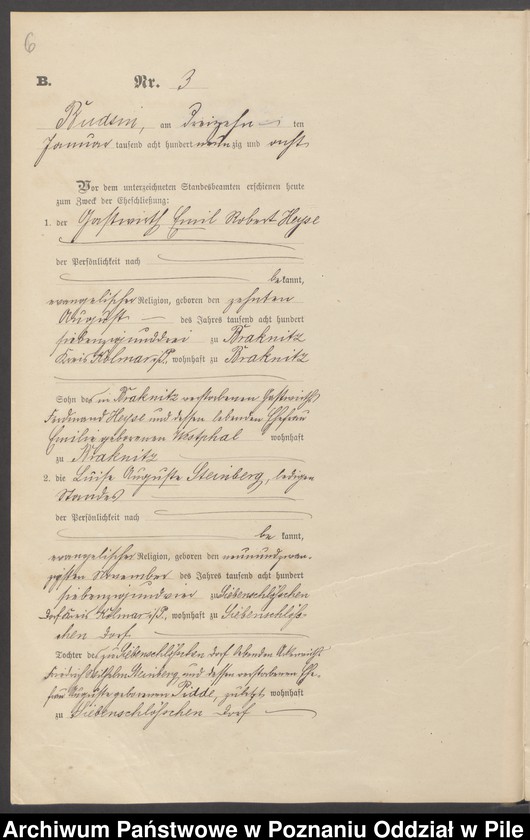 6
B. Nr. 3
Budsin, am dreizehn ten
Januar tausend acht hundert neunzig und acht
Vor dem unterzeichneten Standesbeamten erschienen heute
zum Zweck der Eheschließung:
1. der Gastwirth Emil Robert Heyse
der Persönlichkeit nach
bekannt,
evangelischer Religion, geboren den zehnten
August des Jahres tausend acht hundert
siebenzig und drei zu Braknitz
Kreis Kolmar i/P., wohnhaft zu Braknitz
Sohn des in Braknitz verstorbenen Gastwirths
Ferdinand Heyse und dessen lebenden Ehefrau
Emilie geborenen Westphal wohnhaft
zu Braknitz
2. die Luise Auguste Steinberg, ledigen
Standes
der Persönlichkeit nach
be kannt,
evangelischer Religion, geboren den neunundzwan-
zigsten November des Jahres tausend acht hundert
siebenzig und vier zu Siebenschlößchen
Dorf Kreis Kolmar i/P., wohnhaft zu Siebenschlöß-
chen Dorf
Tochter des zu Siebenschlößchen Dorf lebenden Ackerwirths
Friedrich Wilhelm Steinberg und dessen verstorbenen Ehe-
frau Auguste geborenen Pidde, zuletzt wohnhaft
zu Siebenschlößchen Dorf
Archiwum Państwowe w Poznaniu Oddział w Pile